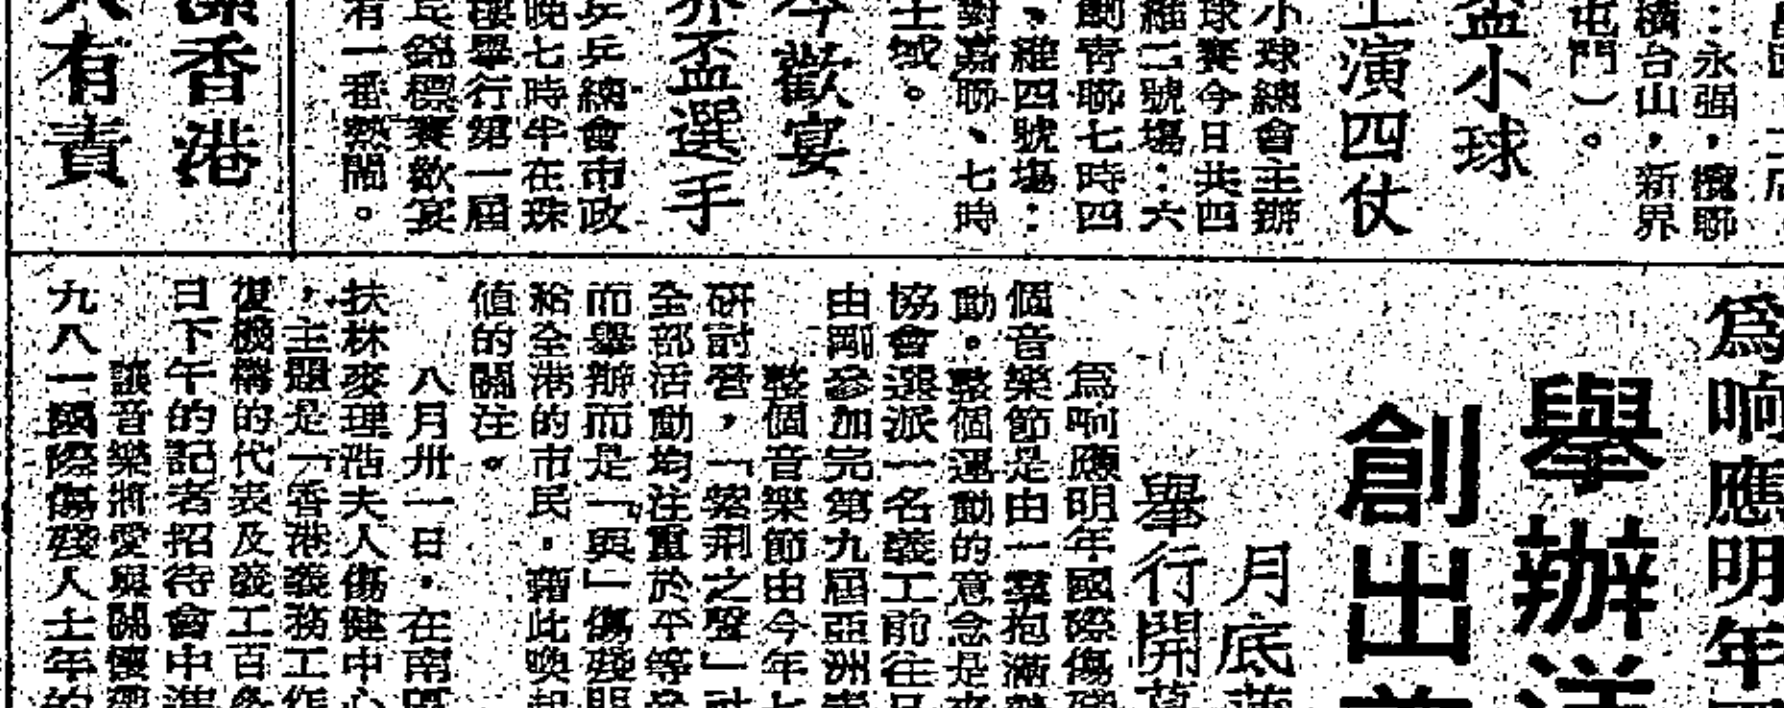 ：永强，攬聯
橫台山，新界
屯門）。
盃小球
上演四仗
小球總會主辦
球賽今日共四
維二號場：六
青聯七時四
、維四號場：
對嘉聯、七時
土域。
今歡宴
盃選手
乒乓總會市政
晚七時半在珠
樓舉行第一屆
民錦標賽歡宴
有一番熱鬧。
香港
人有責
爲响應明年
舉辦
創出
月底
舉行開
爲响應明年國際傷殘
個音樂節是由一羣抱滿
動。整個運動的意念是
協會選派一名義工前往
由剛參加完第九屆亞洲
整個音樂節由今年七
研討營，「紫荊之聲」社
全部活動均注重於平等參
而舉辦而是「與」傷殘
給全港的市民，藉此喚起
值的關注。
八月卅一日，在南
扶林麥理浩夫人傷健中心
，主題是「香港義務工作
復機構的代表及義工百多
日下午的記者招待會中
該音樂將愛與關懷
九八一國際傷殘人士年的